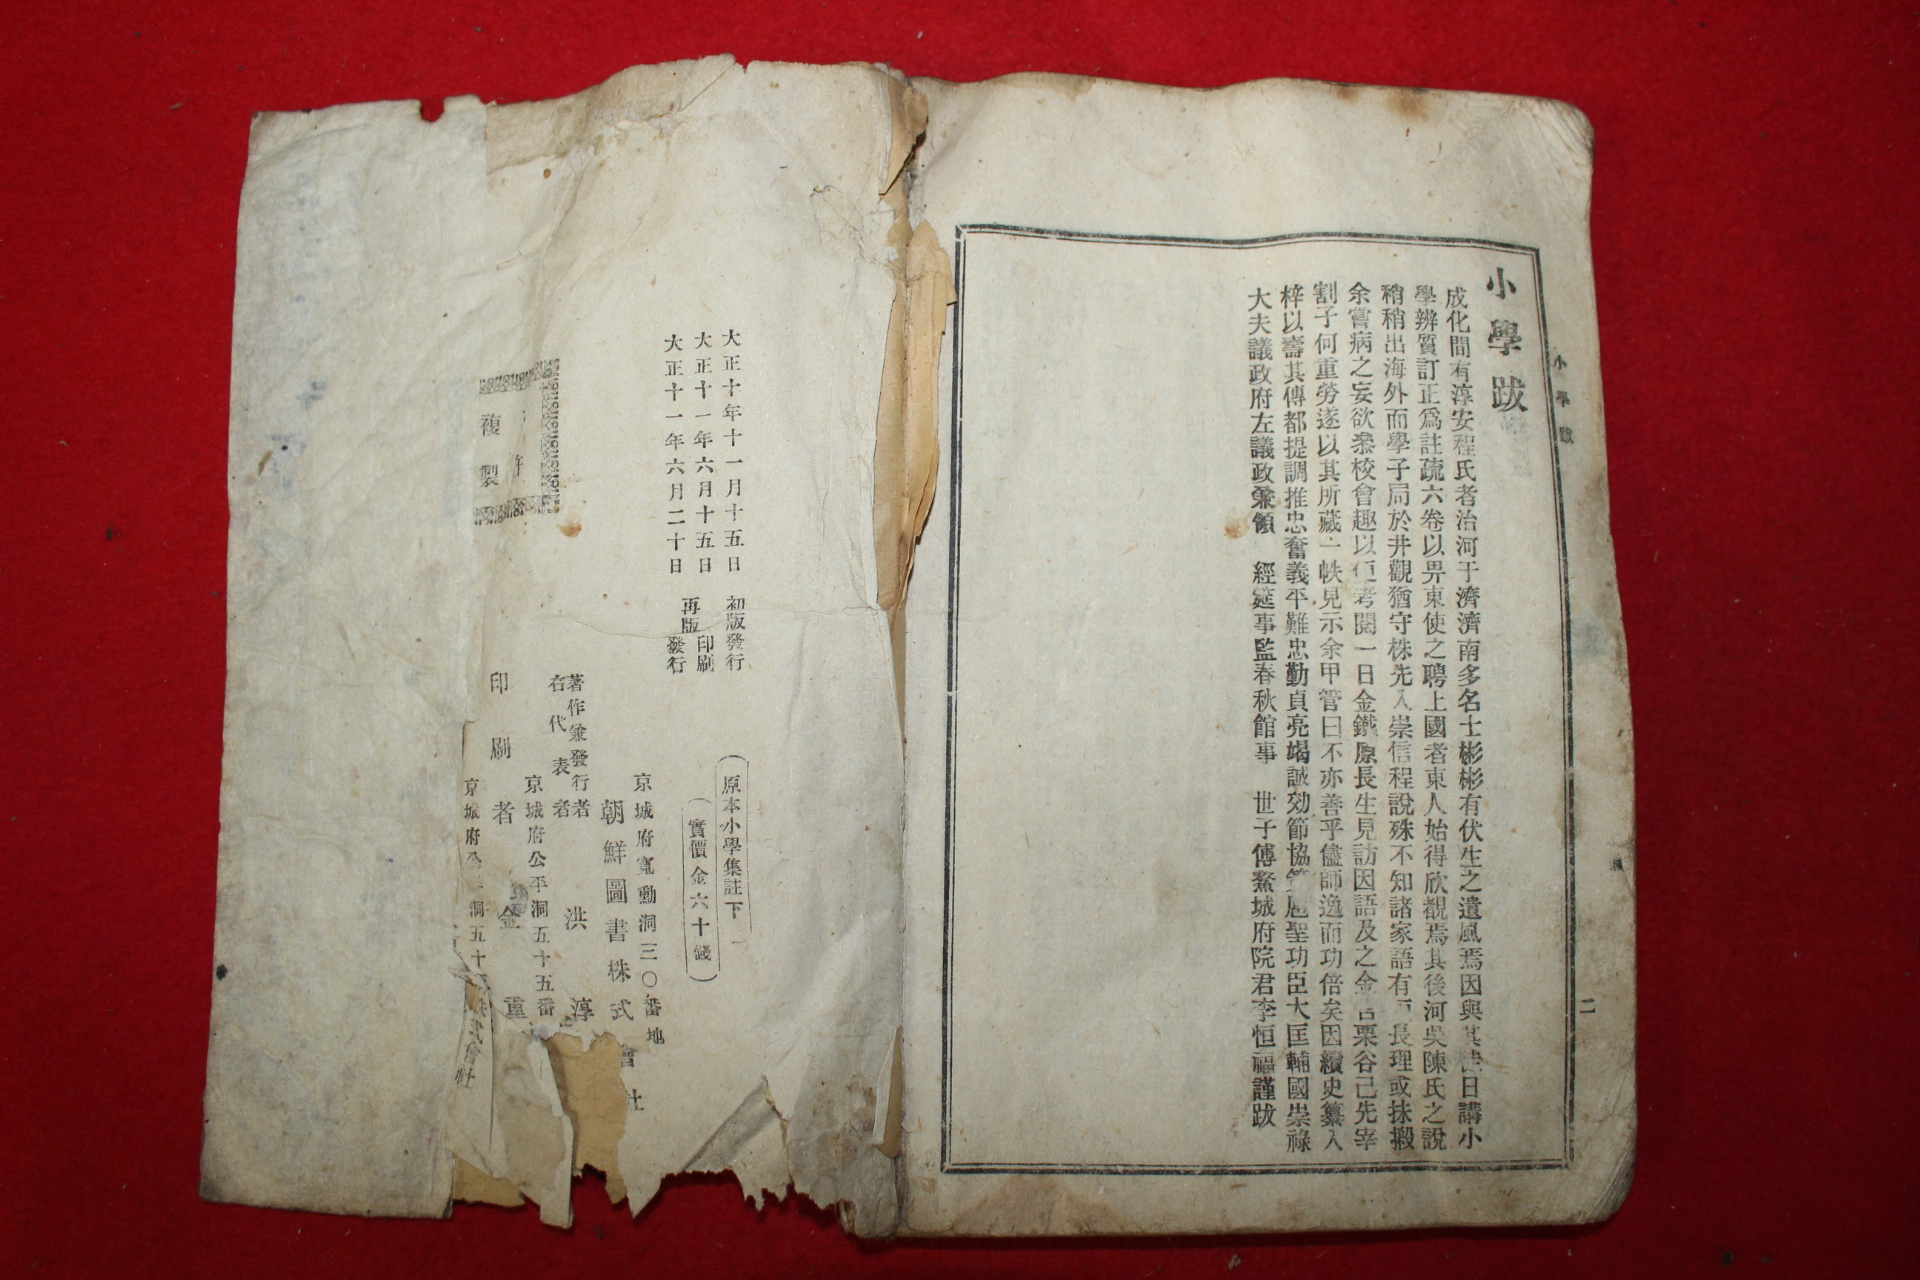 小學跋
小學跋
二
成化間有淳安程氏者治河于濟濟南多名士彬彬有伏生之遺風焉因與其
日講小
學辨質訂正爲註疏六卷以畀東使之聘上國者東人始得欣覩焉其後河吳陳氏之說
稍稍出海外而學子局於井觀猶守株先入崇信程說殊不知諸家語有
長理或抹摋
余嘗病之妄欲叅校會趣以便考閱一日金鐵原長生見訪因語及之金
栗谷已先宰
割子何重勞遂以其所藏一帙見示余甲管曰不亦善乎儘師逸而功倍矣因續史纂入
梓以壽其傳都提調推忠奮義平難忠勤貞亮竭誠効節協策扈聖功臣大匡輔國崇祿
大夫議政府左議政兼領　經筵事監春秋館事　世子傅鰲城府院君李恒福謹跋
大正十年十一月十五日　初版發行
大正十一年六月十五日　印刷
大正十一年六月二十日　發行
再版
許
複製
原本小學集註下
（實價金六十錢）
京城府寬勳洞三〇番地
朝鮮圖書株式會社
著作兼發行者
右代表者　洪淳
京城府公平洞五十五番
印刷者　金重
京城府公
洞五十
株式會社